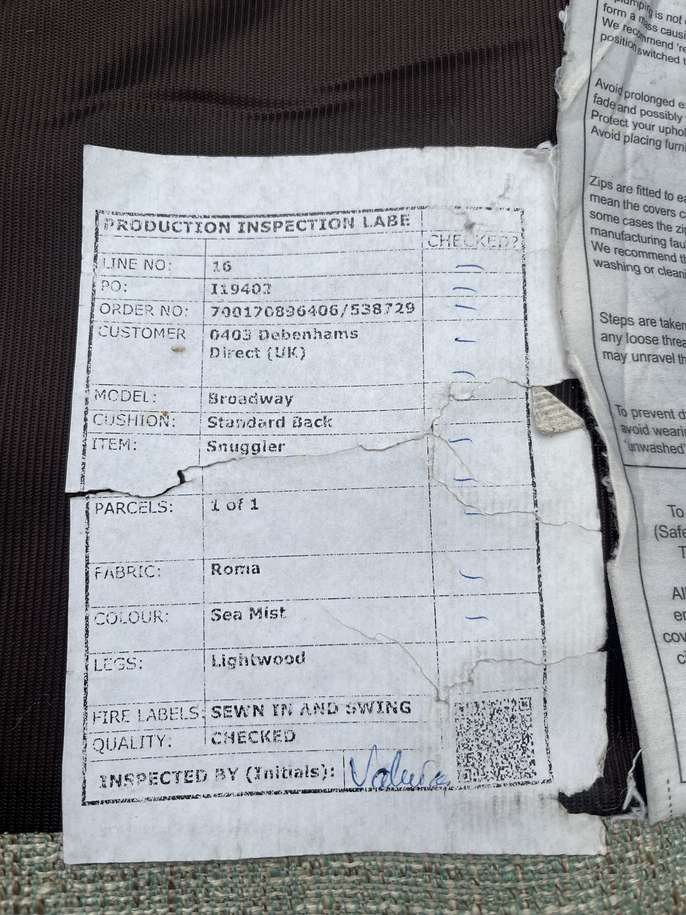 PRODUCTION INSPECTION LABE
CHECKED?
LINE NO: 16
PO: I19402
ORDER NO: 700170896406/538729
CUSTOMER 0403 Debenhams
Direct (UK)
MODEL: Broadway
CUSHION: Standard Back
ITEM: Snuggler
PARCELS: 1 of 1
FABRIC: Roma
COLOUR: Sea Mist
LEGS: Lightwood
FIRE LABELS: SEWN IN AND SWING
QUALITY: CHECKED
INSPECTED BY (Initials):
is not
form a
We recommend 're
position switched t
Avoid prolonged e
fade and possibly
Protect your uphol
Avoid placing furni
Zips are fitted to ea
mean the covers c
some cases the zip
manufacturing fau
We recommend th
washing or cleani
Steps are taken
any loose threa
may unravel th
To prevent d
avoid weari
'unwashed'
To
(Safe
T
Al
er
cov
c